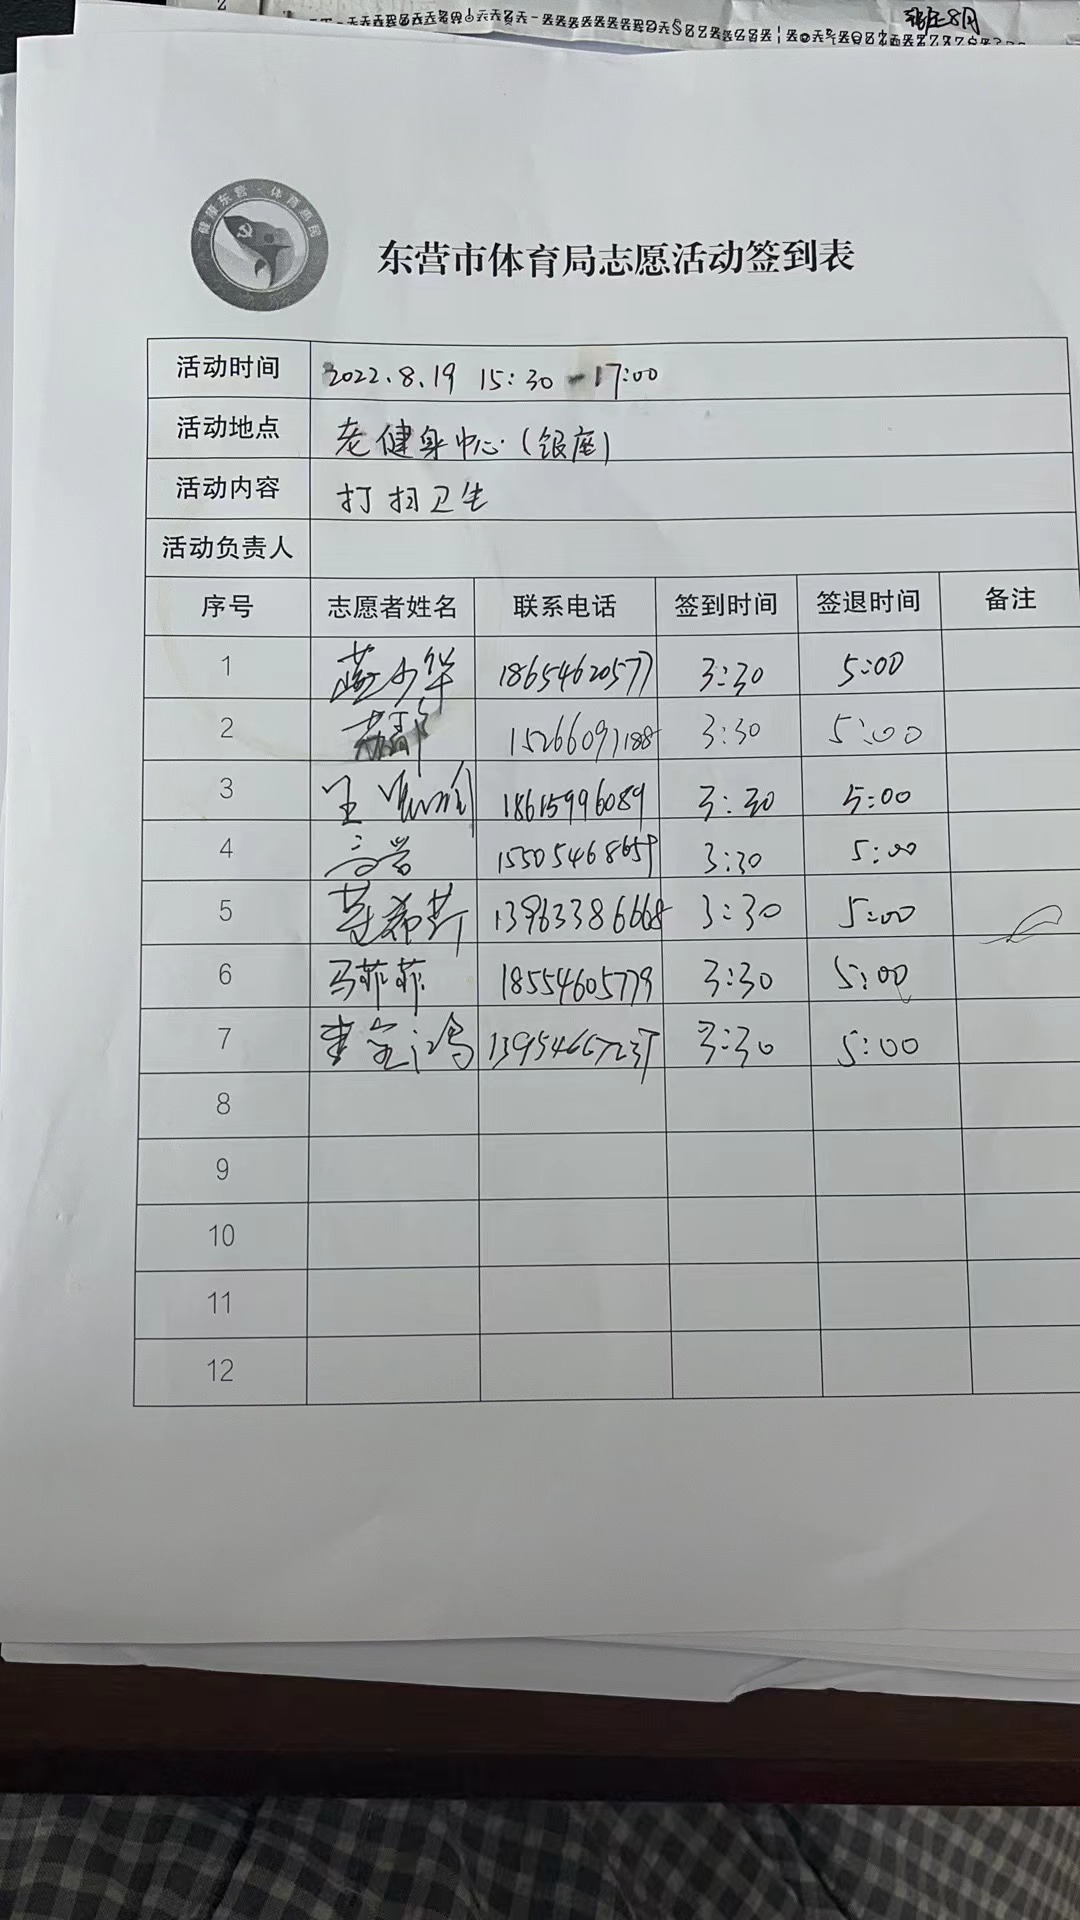 张庄8月
健康东营·体育惠民
东营市体育局志愿活动签到表
活动时间 2022.8.19 15:30-17:00
活动地点 老健身中心(银座)
活动内容 打扫卫生
活动负责人
序号 志愿者姓名 联系电话 签到时间 签退时间 备注
1 燕少华 18654620577 3:30 5:00
2 15266091188 3:30 5:00
3 王 18615996089 3:30 5:00
4 15505468659 3:30 5:00
5 13963386668 3:30 5:00
6 马菲菲 18554605779 3:30 5:00
7 3:30 5:00
8
9
10
11
12